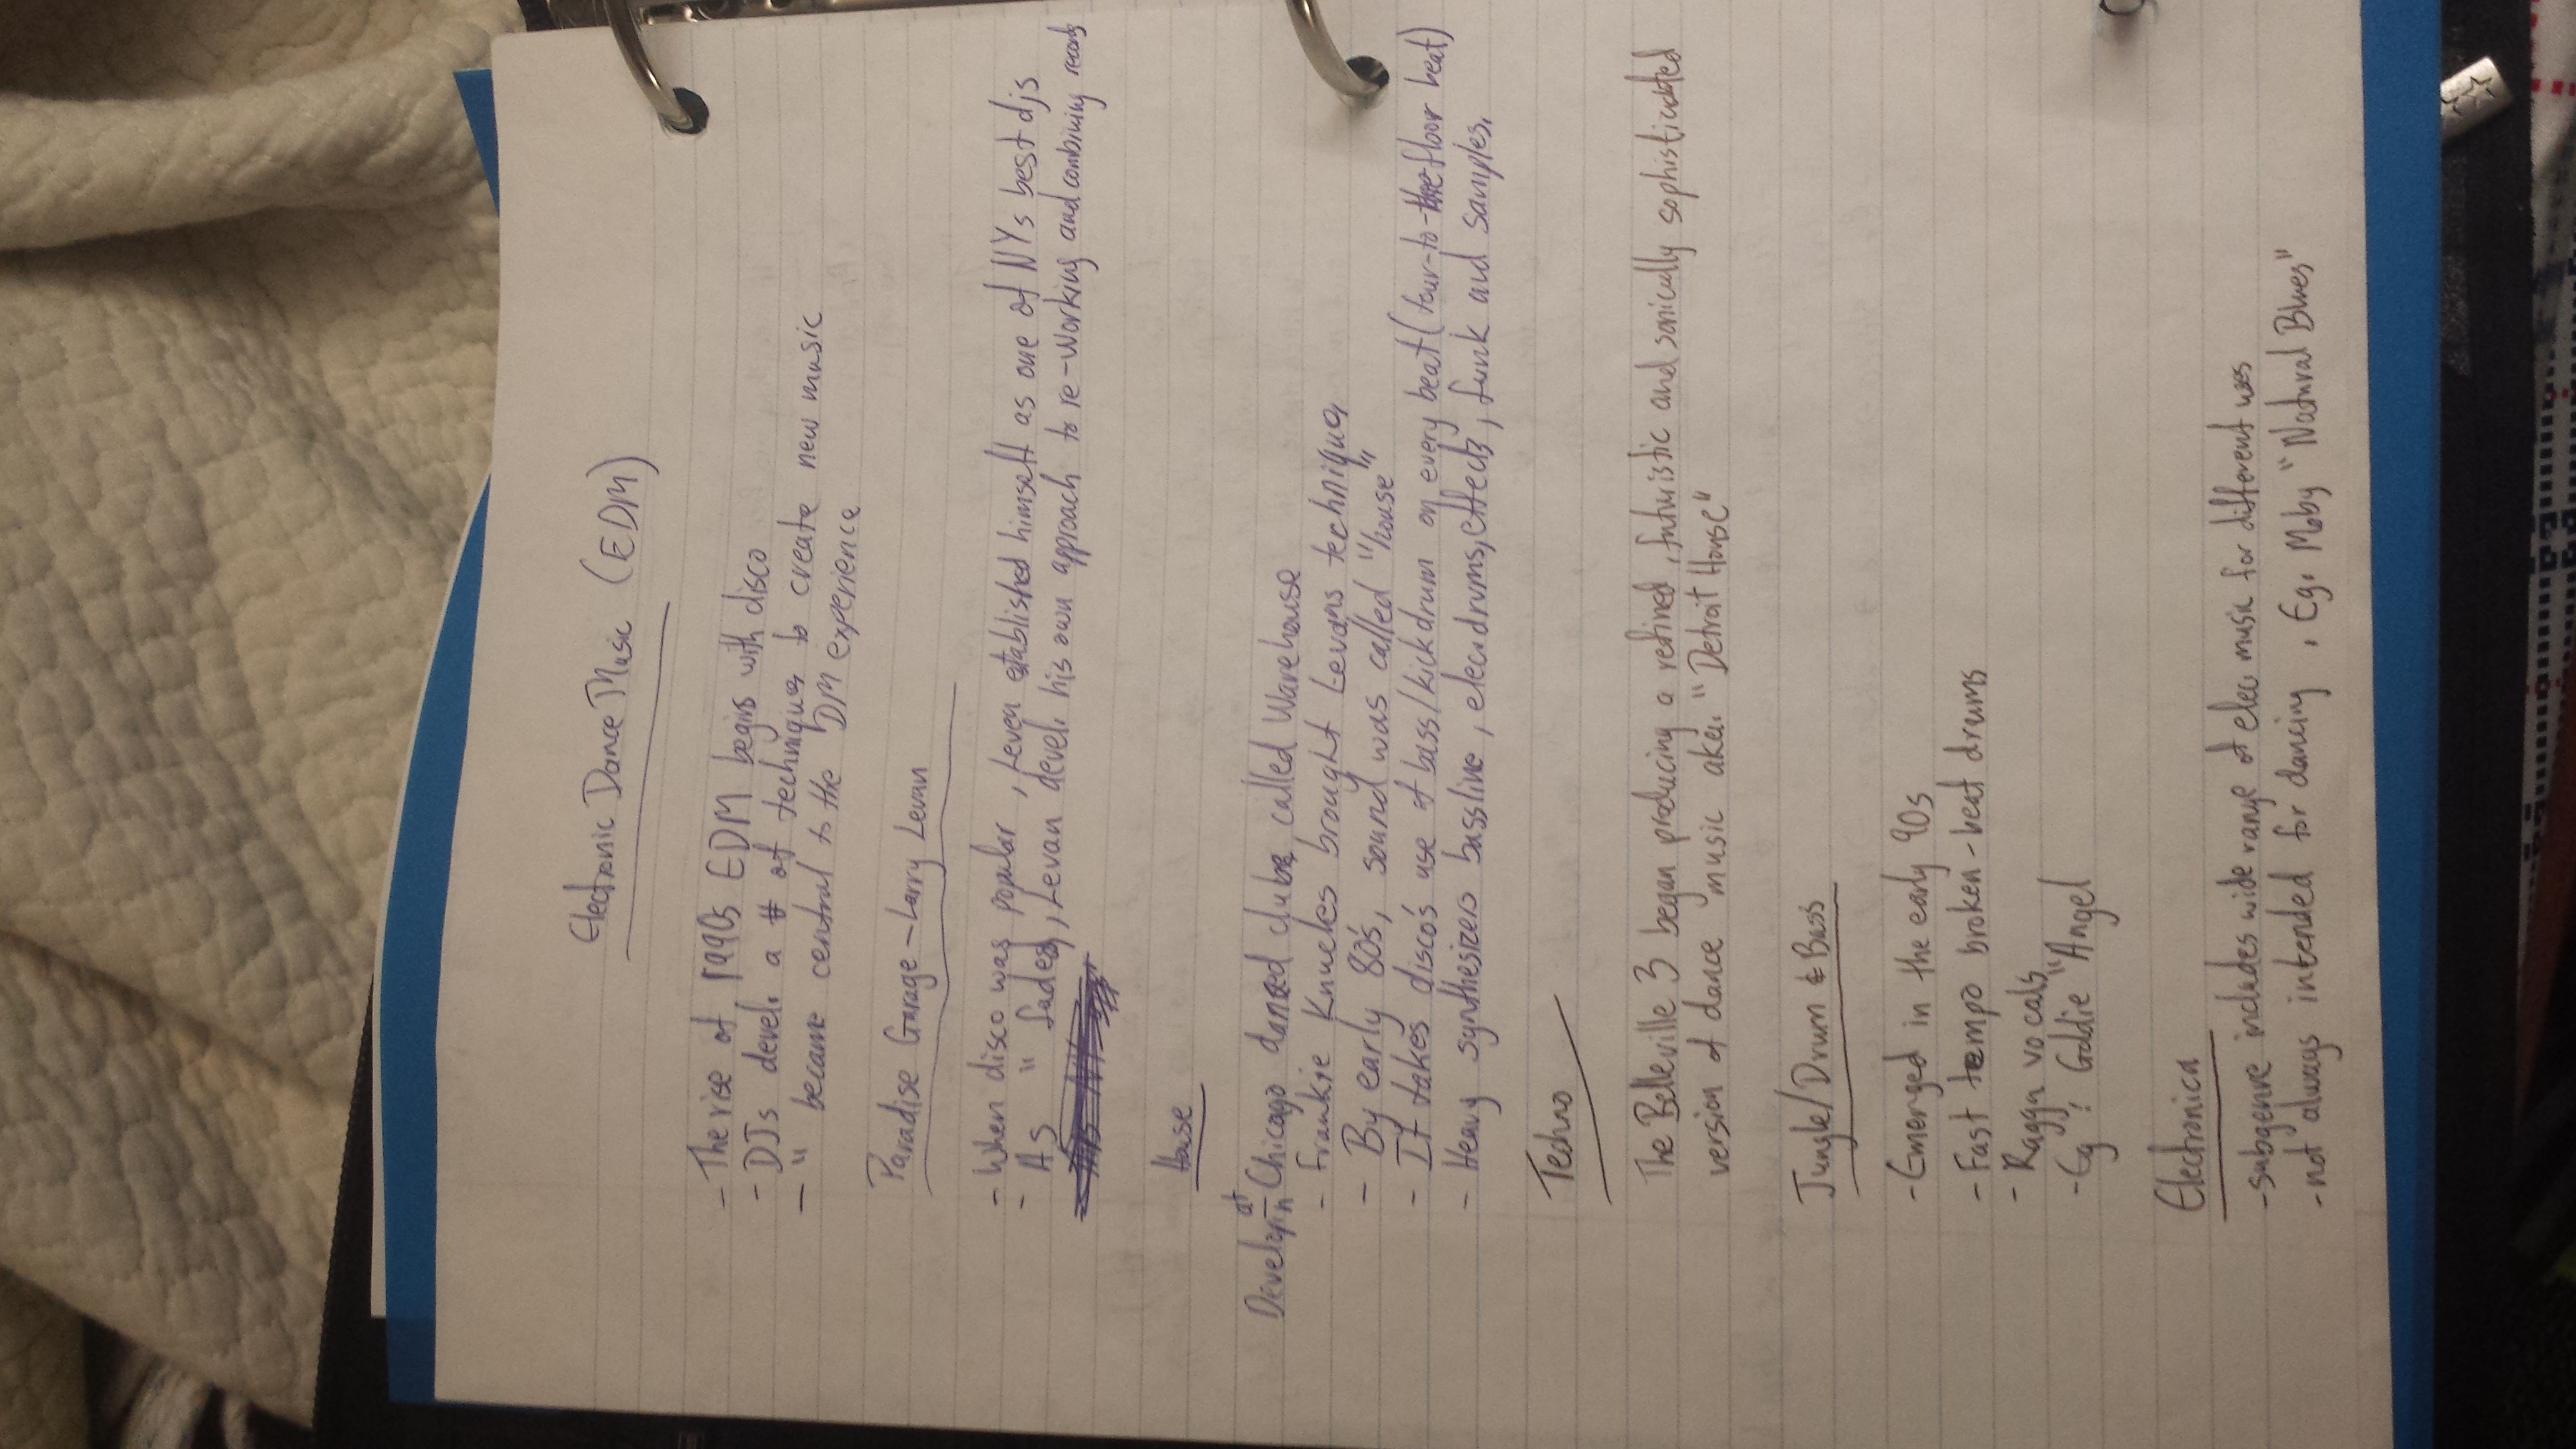 Electronic Dance Music (EDM)
- The rise of 1990s EDM begins with disco
- DJs devel. a # of techniques to create new music
- " became central to the DM experience
Paradise Garage - Larry Levan
- When disco was popular, Leven established himself as one of NYs best djs
- As " fades, Levan devel. his own approach to re-working and combining records
House
Develop in at Chicago danced clubs, called Warehouse
- Frankie Knuckles brought Levans techniques
- By early 80s, sound was called "house"
- It takes disco's use of bass/kick drum on every beat (four-to-the floor beat)
- Heavy synthesizers bassline, elec. drums, effects, funk and samples.
Techno
The Belleville 3 began producing a refined, futuristic and sonically sophisticated
version of dance music aka. "Detroit House"
Jungle/Drum & Bass
- Emerged in the early 90s
- Fast tempo broken-beat drums
- Ragga vocals
- Eg: Goldie "Angel
Electronica
- subgenre includes wide range of elec music for different uses
- not always intended for dancing, Eg. Moby "Natural Blues"